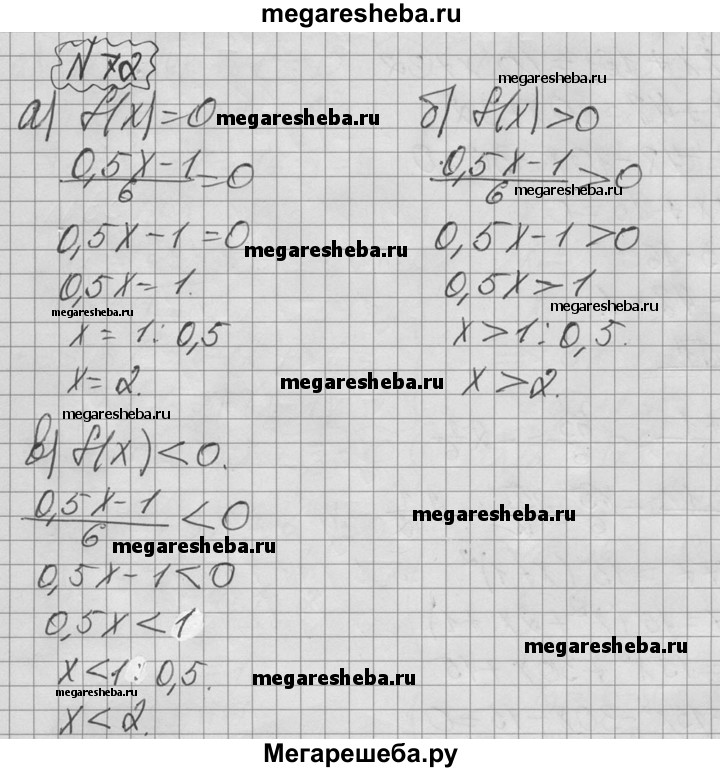 megaresheba.ru
N 72
megaresheba.ru
а) f(x)=0 megaresheba.ru б) f(x)>0
(0,5x-1)/6=0 (0,5x-1)/6>0
megaresheba.ru
0,5x-1=0 megaresheba.ru 0,5x-1>0
0,5x=1. 0,5x>1
megaresheba.ru megaresheba.ru
x=1:0,5 x>1:0,5.
x=2. megaresheba.ru x>2.
megaresheba.ru
в) f(x)<0.
(0,5x-1)/6<0 megaresheba.ru
megaresheba.ru
0,5x-1<0
0,5x<1
megaresheba.ru
x<1:0,5. megaresheba.ru
megaresheba.ru
x<2.
Мегарешеба.ру